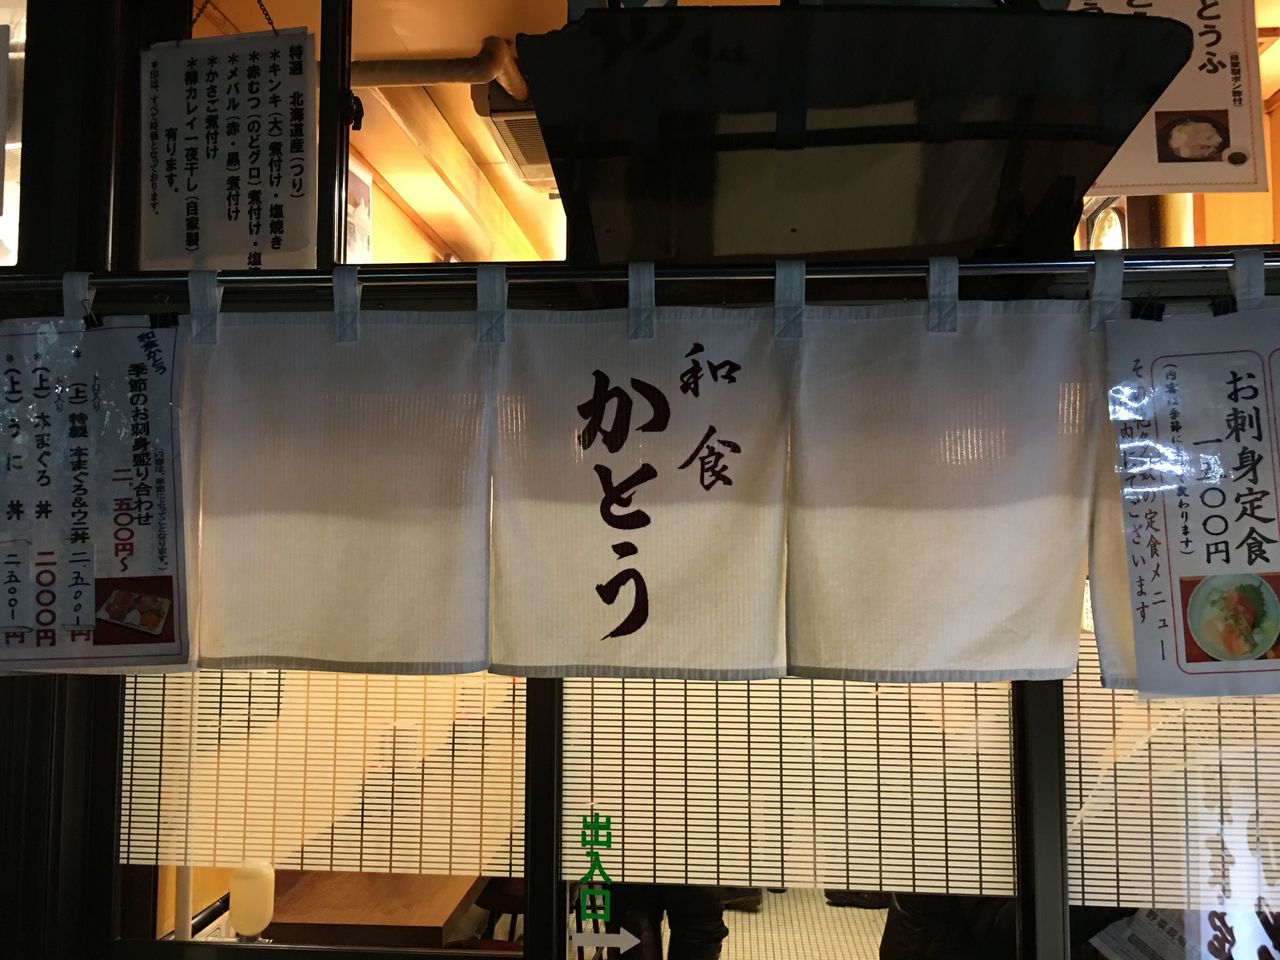 特選 北海道産(つり)
＊キンキ(大)煮付け・塩焼き
＊赤むつ(のどグロ)煮付け・塩
＊メバル(赤・黒)煮付け
＊かさご煮付け
＊柳カレイ一夜干し(自家製)
有ります。
＊印は、すべて時価となっております。
とうふ
(自家製ポン酢付)
和食
かとう
和食かとう
季節のお刺身盛り合わせ
二、五〇〇円〜
トロ入り
＊(上)特製 本まぐろ&ウニ丼 二、五〇〇
トロ入り
＊(上)本まぐろ丼 二〇〇〇円
＊(上)うに丼 二、五〇〇
お刺身定食
一五〇〇円
(内容は季節に て変わります)
の定食メニュー
内にてございます
出入口